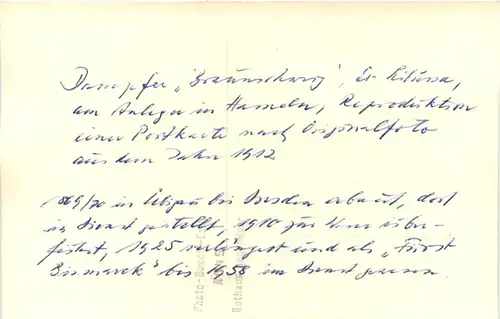 Dampfer „Braunschweig", Ex
am Anleger in Hameln, Reproduktion
einer Postkarte nach Originalfoto
aus dem Jahre 1912
1869/70 in bei Dresden erbaut, dort
in Dienst gestellt, 1910 zur Weser über-
führt, 1925 verlängert und als „Fürst
Bismarck" bis 1958 im Dienst gewesen
Photo-
Rathaus